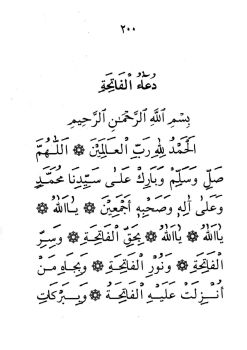 ٢٠٠
دُعَاءُ الْفَاتِحَةِ
بِسْمِ اللّٰهِ الرَّحْمٰنِ الرَّحِيمِ
اَلْحَمْدُ لِلّٰهِ رَبِّ الْعَالَمِينَ ۞ اَللّٰهُمَّ
صَلِّ وَسَلِّمْ وَبَارِكْ عَلٰى سَيِّدِنَا مُحَمَّدٍ
وَعَلٰى اٰلِهِ وَصَحْبِهِ اَجْمَعِينَ ۞ يَااَللّٰهُ ۞
يَااَللّٰهُ ۞ يَااَللّٰهُ ۞ بِحَقِّ الْفَاتِحَةِ ۞ وَسِرِّ
الْفَاتِحَةِ ۞ وَنُورِ الْفَاتِحَةِ ۞ وَبِجَاهِ مَنْ
اُنْزِلَتْ عَلَيْهِ الْفَاتِحَةُ ۞ وَبِبَرَكَاتِ